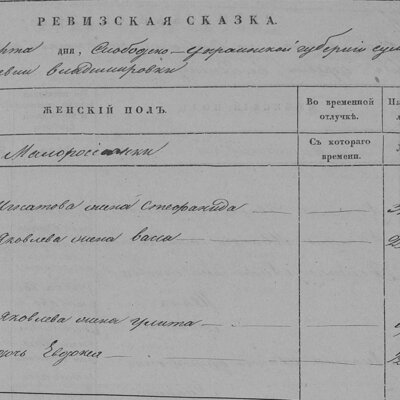 РЕВИЗСКАЯ СКАЗКА.
марта дня, Слободско-Украинской губернии сум
Владимировки
ЖЕНСКІЙ ПОЛЪ.
Во временной
отлучкѣ.
Малороссіянки
Съ котораго
времени.
Игнатова жена Стефанида
Яковлева жена васса
Яковлева жена улита
дочь Евдокея